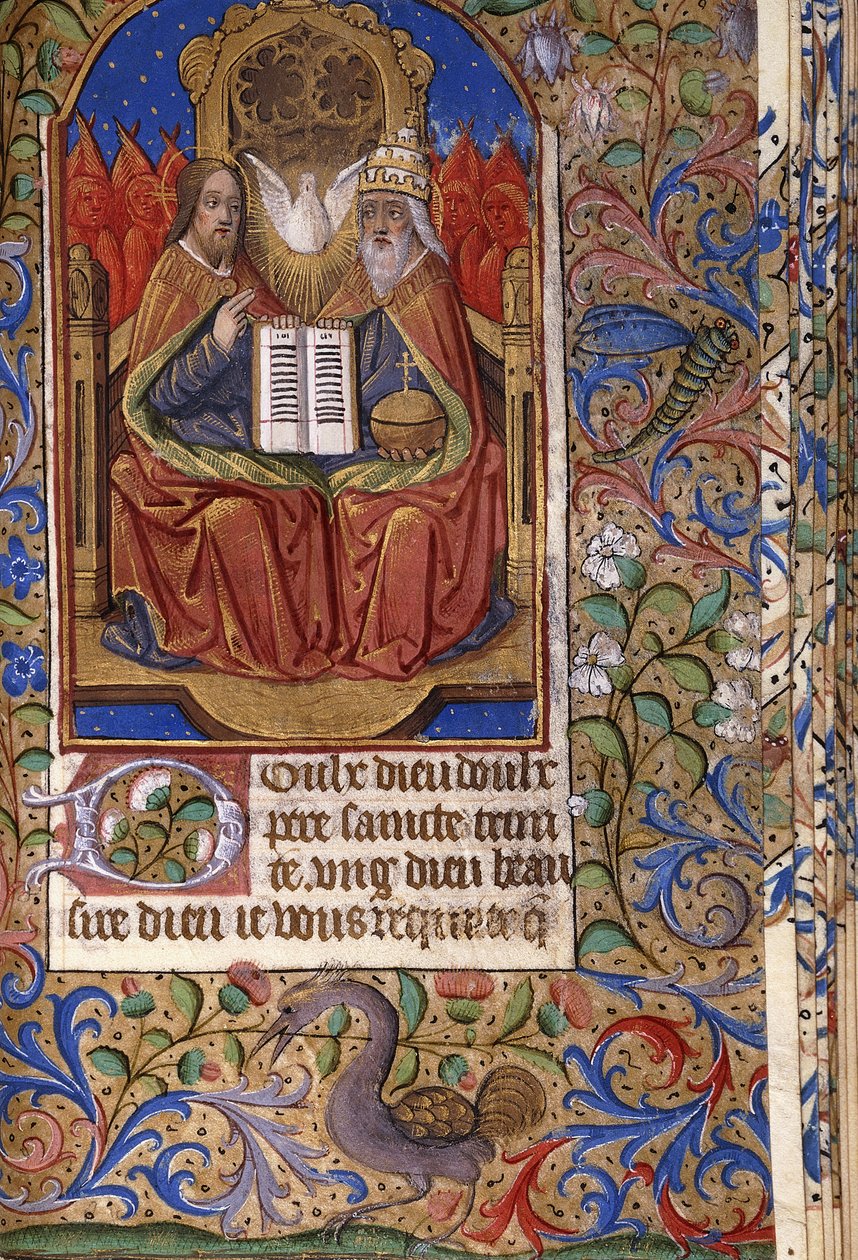 Doulx dieu doulx
pere saincte trini
te. vng dieu beau
sire dieu ie vous